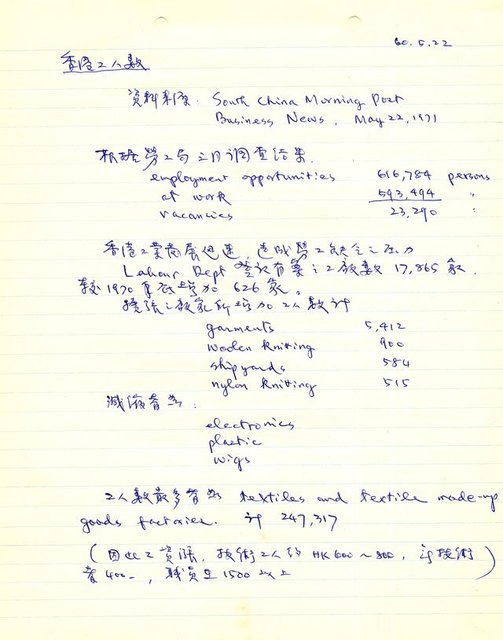 60.5.22
香港工人數
資料來源: South China Morning Post
Business News, May 22, 1971
根據勞工局三月調查結果
employment opportunities 616,784 persons
at work 593,494 "
vacancies 23,290 "
香港工業發展迅速,造成勞工缺乏之壓力
Labour Dept 登記有案之工廠數 17,865 家
較1970年底增加 626 家。
擴張之廠家所增加工人數計
garments 5,412
woolen knitting 900
shipyards 584
nylon knitting 515
減縮者為:
electronics
plastic
wigs
工人數最多者為 textiles and textile made-up
goods factories. 計 247,317
(因此工資漲,技術工人約 HK600~800,非技術
者400-,職員在1500以上)